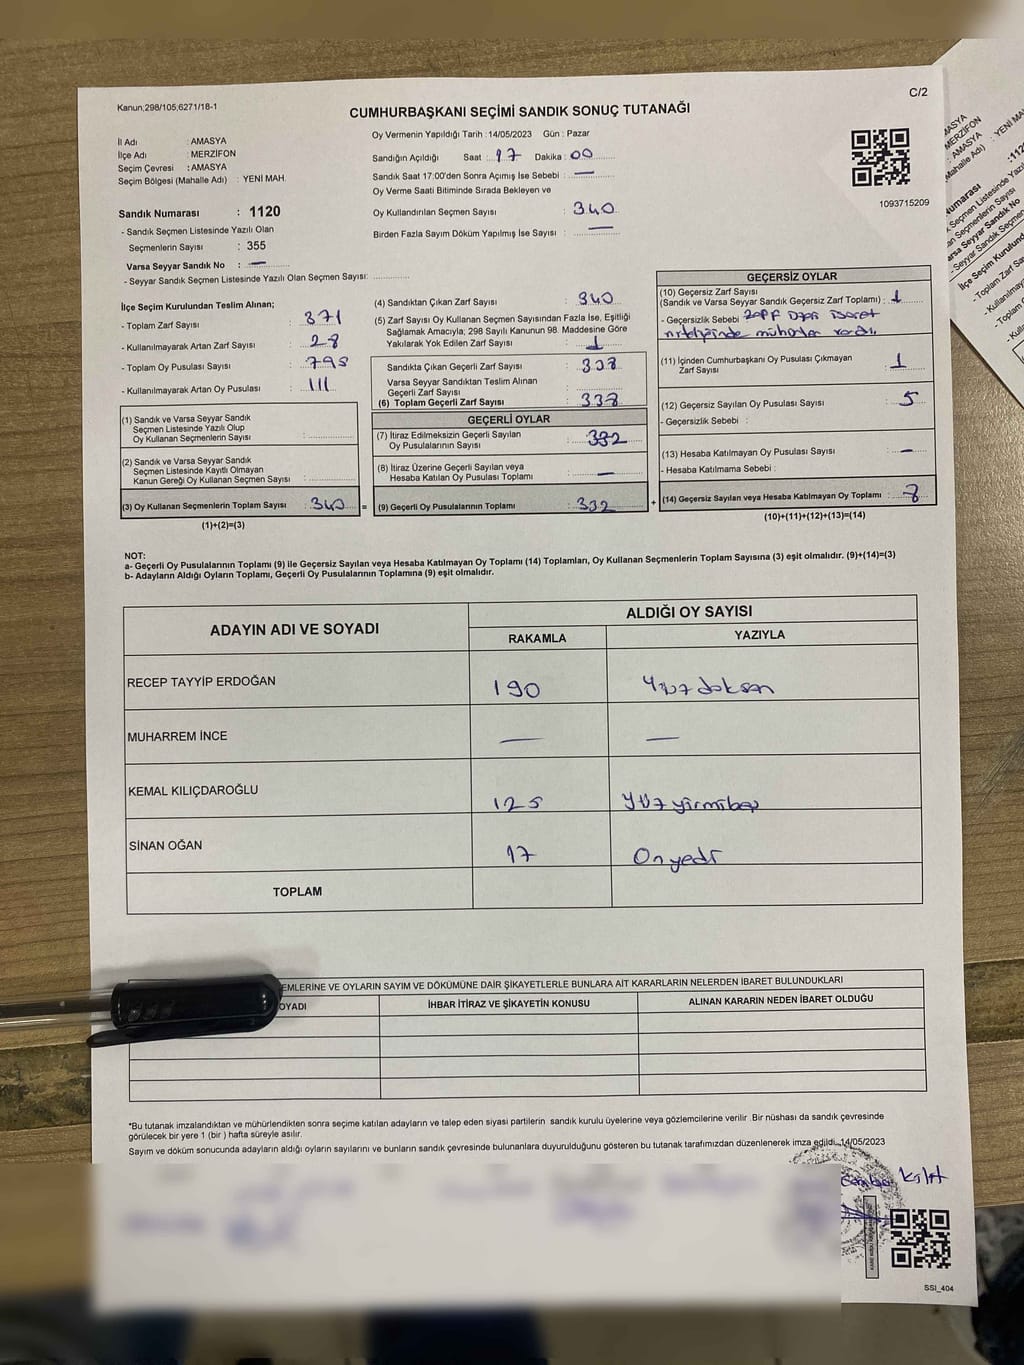 Kanun;298/105,6271/18-1
C/2
CUMHURBAŞKANI SEÇİMİ SANDIK SONUÇ TUTANAĞI
İl Adı : AMASYA
İlçe Adı : MERZİFON
Seçim Çevresi : AMASYA
Seçim Bölgesi (Mahalle Adı) : YENİ MAH.
Oy Vermenin Yapıldığı Tarih : 14/05/2023 Gün : Pazar
Sandığın Açıldığı Saat : 17 Dakika : 00
Sandık Saat 17:00'den Sonra Açımış İse Sebebi : —
Oy Verme Saati Bitiminde Sırada Bekleyen ve
Oy Kullandırılan Seçmen Sayısı : 340
Birden Fazla Sayım Döküm Yapılmış İse Sayısı : —
1093715209
Sandık Numarası : 1120
- Sandık Seçmen Listesinde Yazılı Olan
Seçmenlerin Sayısı : 355
Varsa Seyyar Sandık No : —
- Seyyar Sandık Seçmen Listesinde Yazılı Olan Seçmen Sayısı:
İlçe Seçim Kurulundan Teslim Alınan;
- Toplam Zarf Sayısı : 371
- Kullanılmayarak Artan Zarf Sayısı : 28
- Toplam Oy Pusulası Sayısı :
- Kullanılmayarak Artan Oy Pusulası : 111
(1) Sandık ve Varsa Seyyar Sandık
Seçmen Listesinde Yazılı Olup
Oy Kullanan Seçmenlerin Sayısı :
(2) Sandık ve Varsa Seyyar Sandık
Seçmen Listesinde Kayıtlı Olmayan
Kanun Gereği Oy Kullanan Seçmen Sayısı :
(3) Oy Kullanan Seçmenlerin Toplam Sayısı : 340 =
(1)+(2)=(3)
(4) Sandıktan Çıkan Zarf Sayısı : 340
(5) Zarf Sayısı Oy Kullanan Seçmen Sayısından Fazla İse, Eşitliği
Sağlamak Amacıyla; 298 Sayılı Kanunun 98. Maddesine Göre
Yakılarak Yok Edilen Zarf Sayısı : 1
Sandıkta Çıkan Geçerli Zarf Sayısı : 338
Varsa Seyyar Sandıktan Teslim Alınan
Geçerli Zarf Sayısı :
(6) Toplam Geçerli Zarf Sayısı : 338
GEÇERLİ OYLAR
(7) İtiraz Edilmeksizin Geçerli Sayılan
Oy Pusulalarının Sayısı : 332
(8) İtiraz Üzerine Geçerli Sayılan veya
Hesaba Katılan Oy Pusulası Toplamı : —
(9) Geçerli Oy Pusulalarının Toplamı : 332 +
GEÇERSİZ OYLAR
(10) Geçersiz Zarf Sayısı
(Sandık ve Varsa Seyyar Sandık Geçersiz Zarf Toplamı) : 1
- Geçersizlik Sebebi
(11) İçinden Cumhurbaşkanı Oy Pusulası Çıkmayan
Zarf Sayısı : 1
(12) Geçersiz Sayılan Oy Pusulası Sayısı : 5
- Geçersizlik Sebebi :
(13) Hesaba Katılmayan Oy Pusulası Sayısı : —
- Hesaba Katılmama Sebebi :
(14) Geçersiz Sayılan veya Hesaba Katılmayan Oy Toplamı : 8
(10)+(11)+(12)+(13)=(14)
NOT:
a- Geçerli Oy Pusulalarının Toplamı (9) ile Geçersiz Sayılan veya Hesaba Katılmayan Oy Toplamı (14) Toplamları, Oy Kullanan Seçmenlerin Toplam Sayısına (3) eşit olmalıdır. (9)+(14)=(3)
b- Adayların Aldığı Oyların Toplamı, Geçerli Oy Pusulalarının Toplamına (9) eşit olmalıdır.
ADAYIN ADI VE SOYADI
ALDIĞI OY SAYISI
RAKAMLA YAZIYLA
RECEP TAYYİP ERDOĞAN 190 Yüz doksan
MUHARREM İNCE — —
KEMAL KILIÇDAROĞLU 125 Yüz yirmibeş
SİNAN OĞAN 17 Onyedi
TOPLAM
EMLERİNE VE OYLARIN SAYIM VE DÖKÜMÜNE DAİR ŞİKAYETLERLE BUNLARA AİT KARARLARIN NELERDEN İBARET BULUNDUKLARI
OYADI İHBAR İTİRAZ VE ŞİKAYETİN KONUSU ALINAN KARARIN NEDEN İBARET OLDUĞU
*Bu tutanak imzalandıktan ve mühürlendikten sonra seçime katılan adayların ve talep eden siyasi partilerin sandık kurulu üyelerine veya gözlemcilerine verilir .Bir nüshası da sandık çevresinde
görülecek bir yere 1 (bir ) hafta süreyle asılır.
Sayım ve döküm sonucunda adayların aldığı oyların sayılarını ve bunların sandık çevresinde bulunanlara duyurulduğunu gösteren bu tutanak tarafımızdan düzenlenerek imza edildi. 14/05/2023
SSI_404